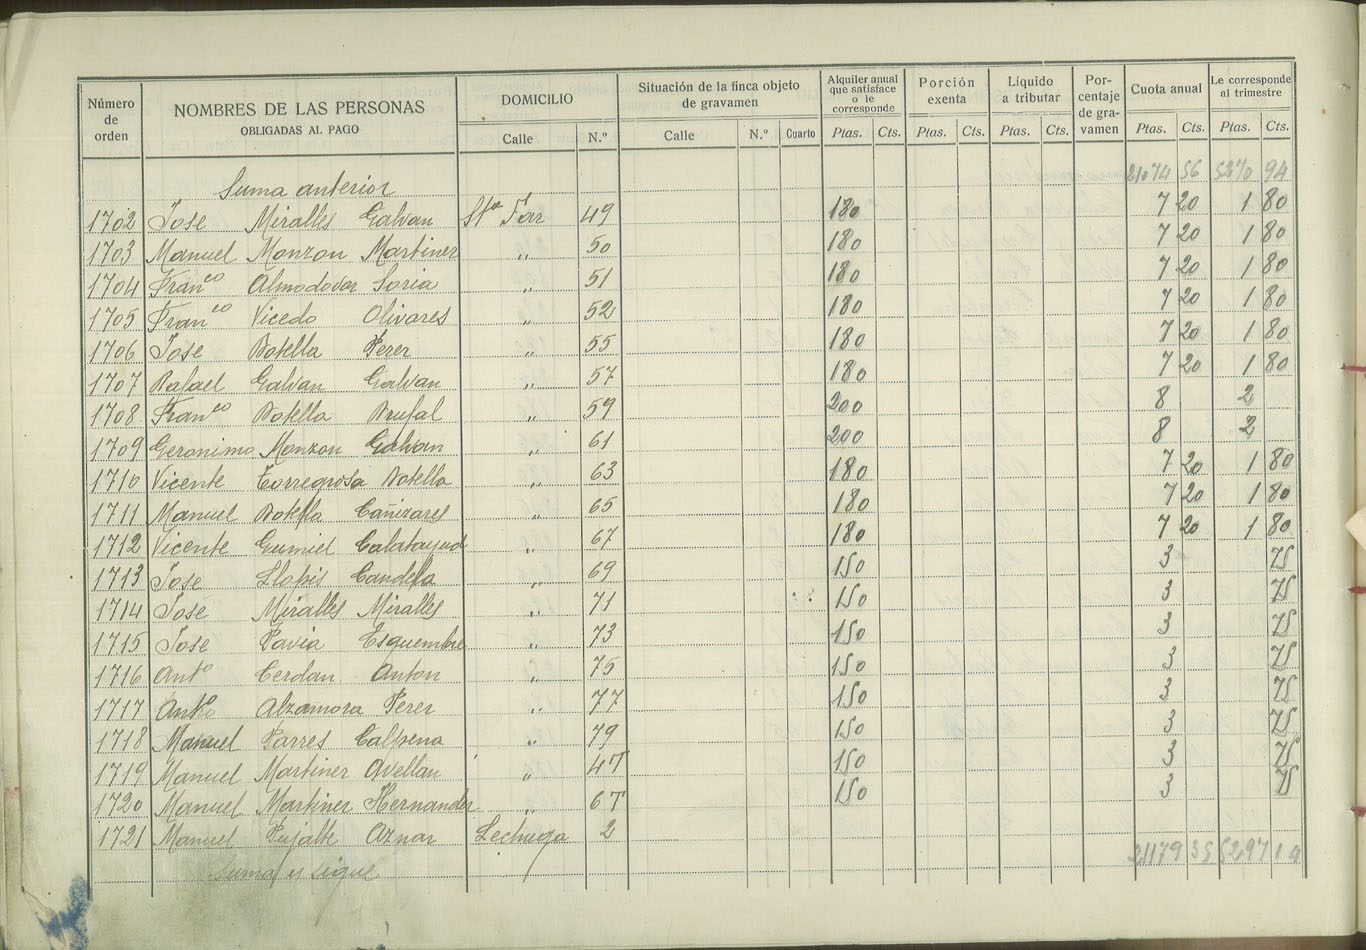 Número de orden NOMBRES DE LAS PERSONAS OBLIGADAS AL PAGO DOMICILIO Situación de la finca objeto de gravamen Alquiler anual que satisface o le corresponde Porción exenta Líquido a tributar Por-centaje de gra-vamen Cuota anual Le corresponde al trimestre
Calle N.º Calle N.º Cuarto Ptas. Cts. Ptas. Cts. Ptas. Cts. Ptas. Cts. Ptas. Cts.
Suma anterior 21074 56 5270 94
1702 Jose Miralles Galvan Sta Far 49 180 7 20 1 80
1703 Manuel Monzon Martinez „ 50 180 7 20 1 80
1704 Franco Almodovar Soria „ 51 180 7 20 1 80
1705 Franco Vicedo Olivares „ 52 180 7 20 1 80
1706 Jose Botella Perez „ 55 180 7 20 1 80
1707 Rafael Galvan Galvan „ 57 180 7 20 1 80
1708 Franco Botella Brufal „ 59 200 8 2
1709 Geronimo Monzon Galvan „ 61 200 8 2
1710 Vicente Torregrosa Botella „ 63 180 7 20 1 80
1711 Manuel Botella Cañizares „ 65 180 7 20 1 80
1712 Vicente Gumiel Calatayud „ 67 180 7 20 1 80
1713 Jose Llopis Candela „ 69 150 3 75
1714 Jose Miralles Miralles „ 71 150 3 75
1715 Jose Pavia Esquembre „ 73 150 3 75
1716 Anto Cerdan Anton „ 75 150 3 75
1717 Anto Alzamora Perez „ 77 150 3 75
1718 Manuel Parres Calpena „ 79 150 3 75
1719 Manuel Martinez Avellan „ 4T 150 3 75
1720 Manuel Martinez Hernandez „ 6T 150 3 75
1721 Manuel Pujalte Aznar Lechuga 2
Suma y sigue 21179 35 5297 19